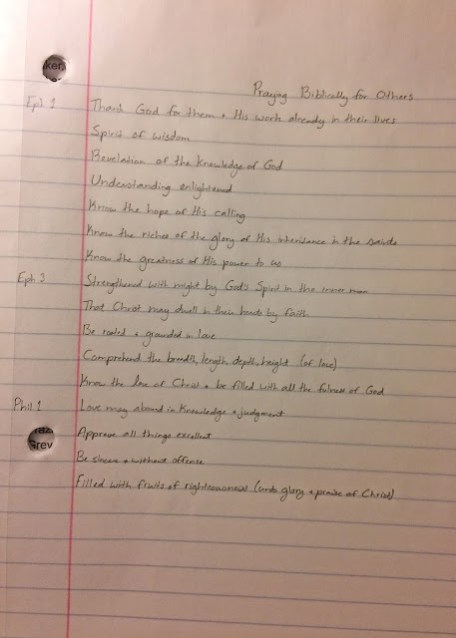 ker
Praying Biblically for Others
Eph 1 Thank God for them + His work already in their lives
Spirit of wisdom
Revelation of the knowledge of God
Understanding enlightened
Know the hope of His calling
Know the riches of the glory of His inheritance in the saints
Know the greatness of His power to us
Eph 3 Strengthened with might by God's Spirit in the inner man
That Christ may dwell in their hearts by faith
Be rooted + grounded in love
Comprehend the breadth, length, depth, height (of love)
Know the love of Christ + be filled with all the fulness of God
Phil 1 Love may abound in knowledge + judgment
Approve all things excellent
Grev
Be sincere + without offense
Filled with fruits of righteousness (unto glory + praise of Christ)